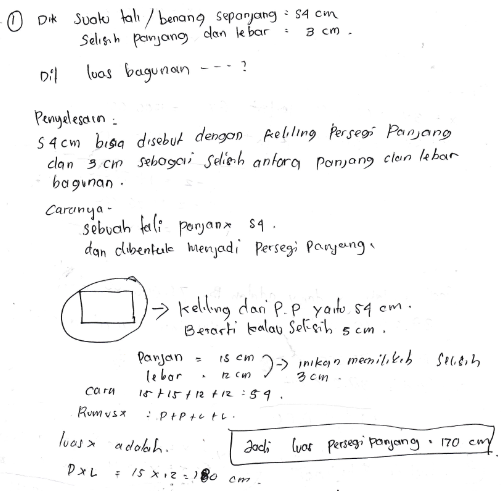 ① Dik suatu tali/benang sepanjang = 54 cm
Selisih panjang dan lebar = 3 cm.
Dit luas bagunan ---- ?
Penyelesain :
54 cm bisa disebut dengan keliling Persegi Panjang
dan 3 cm sebagai selisih antara panjang dan lebar
bagunan.
Caranya -
sebuah tali panjanx 54.
dan dibentuk menjadi Persegi Panjang.
→ keliling dari P.P yaitu 54 cm.
Berarti kalau selisih 5 cm.
Panjan = 15 cm
lebar = 12 cm → inikan memilikih selisih
3 cm.
cara 15+15+12+12 = 54.
Rumusx : P+P+L+L.
luasx adalah.
PxL = 15 x 12 = 180 cm.
Jadi luas persegi panjang = 170 cm